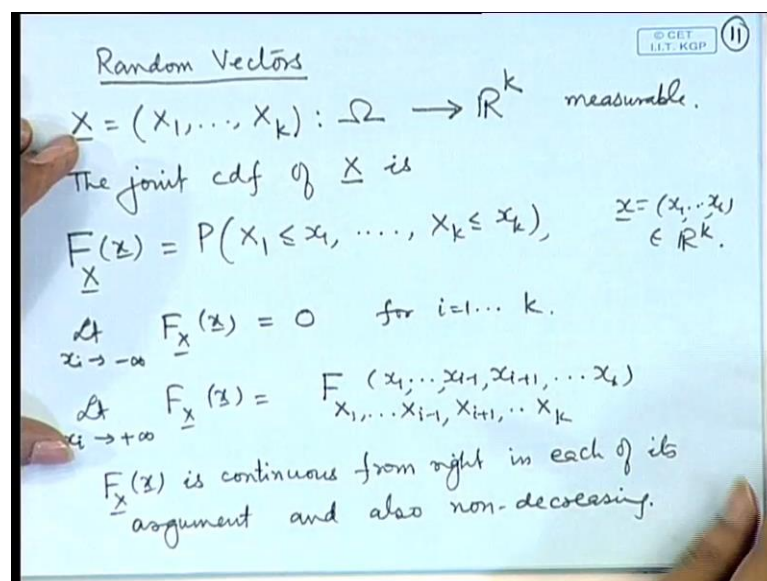 © CET
I.I.T. KGP
11
Random Vectors
X = (X₁, ..., X_k) : Ω → ℝ^k measurable.
The joint cdf of X is
F_X(x) = P(X₁ ≤ x₁, ...., X_k ≤ x_k), x = (x₁...x_k)
∈ ℝ^k.
Lt F_X(x) = 0 for i=1... k.
x_i → -∞
Lt F_X(x) = F (x₁,..., x_{i-1}, x_{i+1}, ... x_k)
x_i → +∞ X₁,... X_{i-1}, X_{i+1}, .. X_k
F_X(x) is continuous from right in each of its
argument and also non-decreasing.